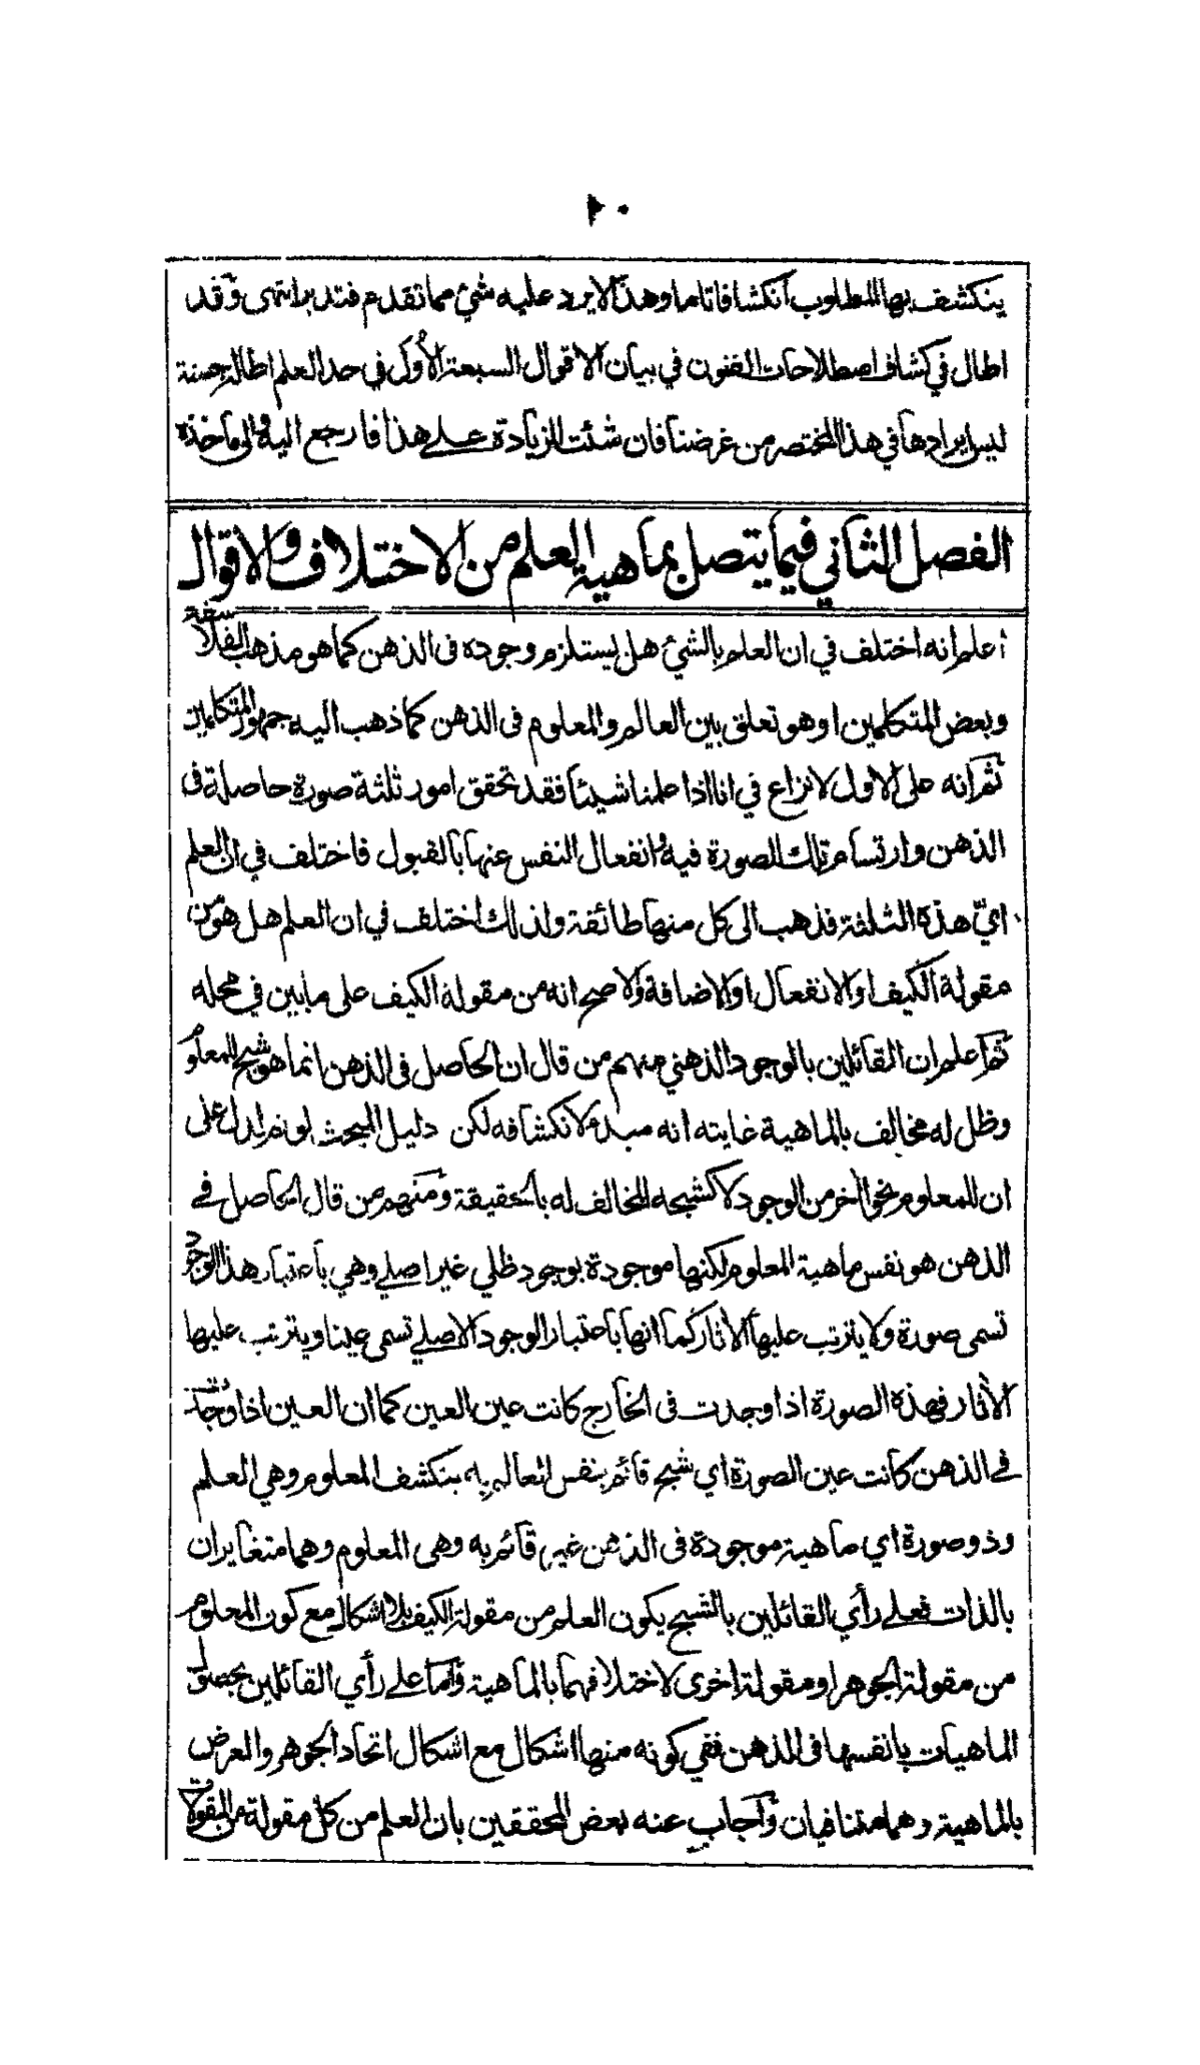 ١٠
ينكشف بها المطلوب انكشافا تاما وهذا لا يرد عليه شئ مما تقدم فتدبر انتهى وقد
اطال في كشاف اصطلاحات الفنون في بيان الاقوال السبعة الأول في حد العلم اطالة حسنة
ليس ايرادها في هذا المختصر من غرضنا فان شئت الزيادة على هذا فارجع اليه والى مآخذه
الفصل الثاني فيما يتصل بماهية العلم من الاختلاف والاقوال
اعلم انه اختلف في ان العلم بالشئ هل يستلزم وجوده فى الذهن كما هو مذهب الفلاسفة
وبعض المتكلمين او هو تعلق بين العالم والمعلوم فى الذهن كما ذهب اليه جمهور المتكلمين
ثم انه على الاول لا نزاع في انا اذا علمنا شيئا فقد تحقق امور ثلثة صورة حاصلة فى
الذهن وارتسام تلك الصورة فيه وانفعال النفس عنها بالقبول فاختلف في ان العلم
ايّ هذه الثلثة فذهب الى كل منها طائفة ولذلك اختلف في ان العلم هل هو من
مقولة الكيف او الانفعال او الاضافة والاصح انه من مقولة الكيف على ما بين في محله
ثم اعلم ان القائلين بالوجود الذهني منهم من قال ان الحاصل فى الذهن انما هو شبح للمعلوم
وظل له مخالف بالماهية غايته انه مبدء لانكشافه لكن دليل المبحث لو تم لدل على
ان للمعلوم نحوا آخر من الوجود لا كشبحه المخالف له بالحقيقة ومنهم من قال الحاصل في
الذهن هو نفس ماهية المعلوم لكنها موجودة بوجود ظلي غير اصلي وهي باعتبار هذا الوجود
تسمى صورة ولا يترتب عليها الآثار كما انها باعتبار الوجود الاصلي تسمى عينا ويترتب عليها
الآثار فهذه الصورة اذا وجدت فى الخارج كانت عين العين كما ان العين اذا وجدت
في الذهن كانت عين الصورة اي شبح قائم بنفس العالم به ينكشف المعلوم وهي العلم
وذو صورة اي ماهية موجودة فى الذهن غير قائم به وهى المعلوم وهما متغايران
بالذات فعلى رأي القائلين بالشبح يكون العلم من مقولة الكيف بلا اشكال مع كون المعلوم
من مقولة الجوهر او مقولة اخرى لاختلافهما بالماهية واما على رأي القائلين بحصول
الماهيات بانفسها فى الذهن ففي كونه منها اشكال مع اشكال اتحاد الجوهر والعرض
بالماهية وهما متنافيان وأجاب عنه بعض المحققين بان العلم من كل مقولة من المقولات